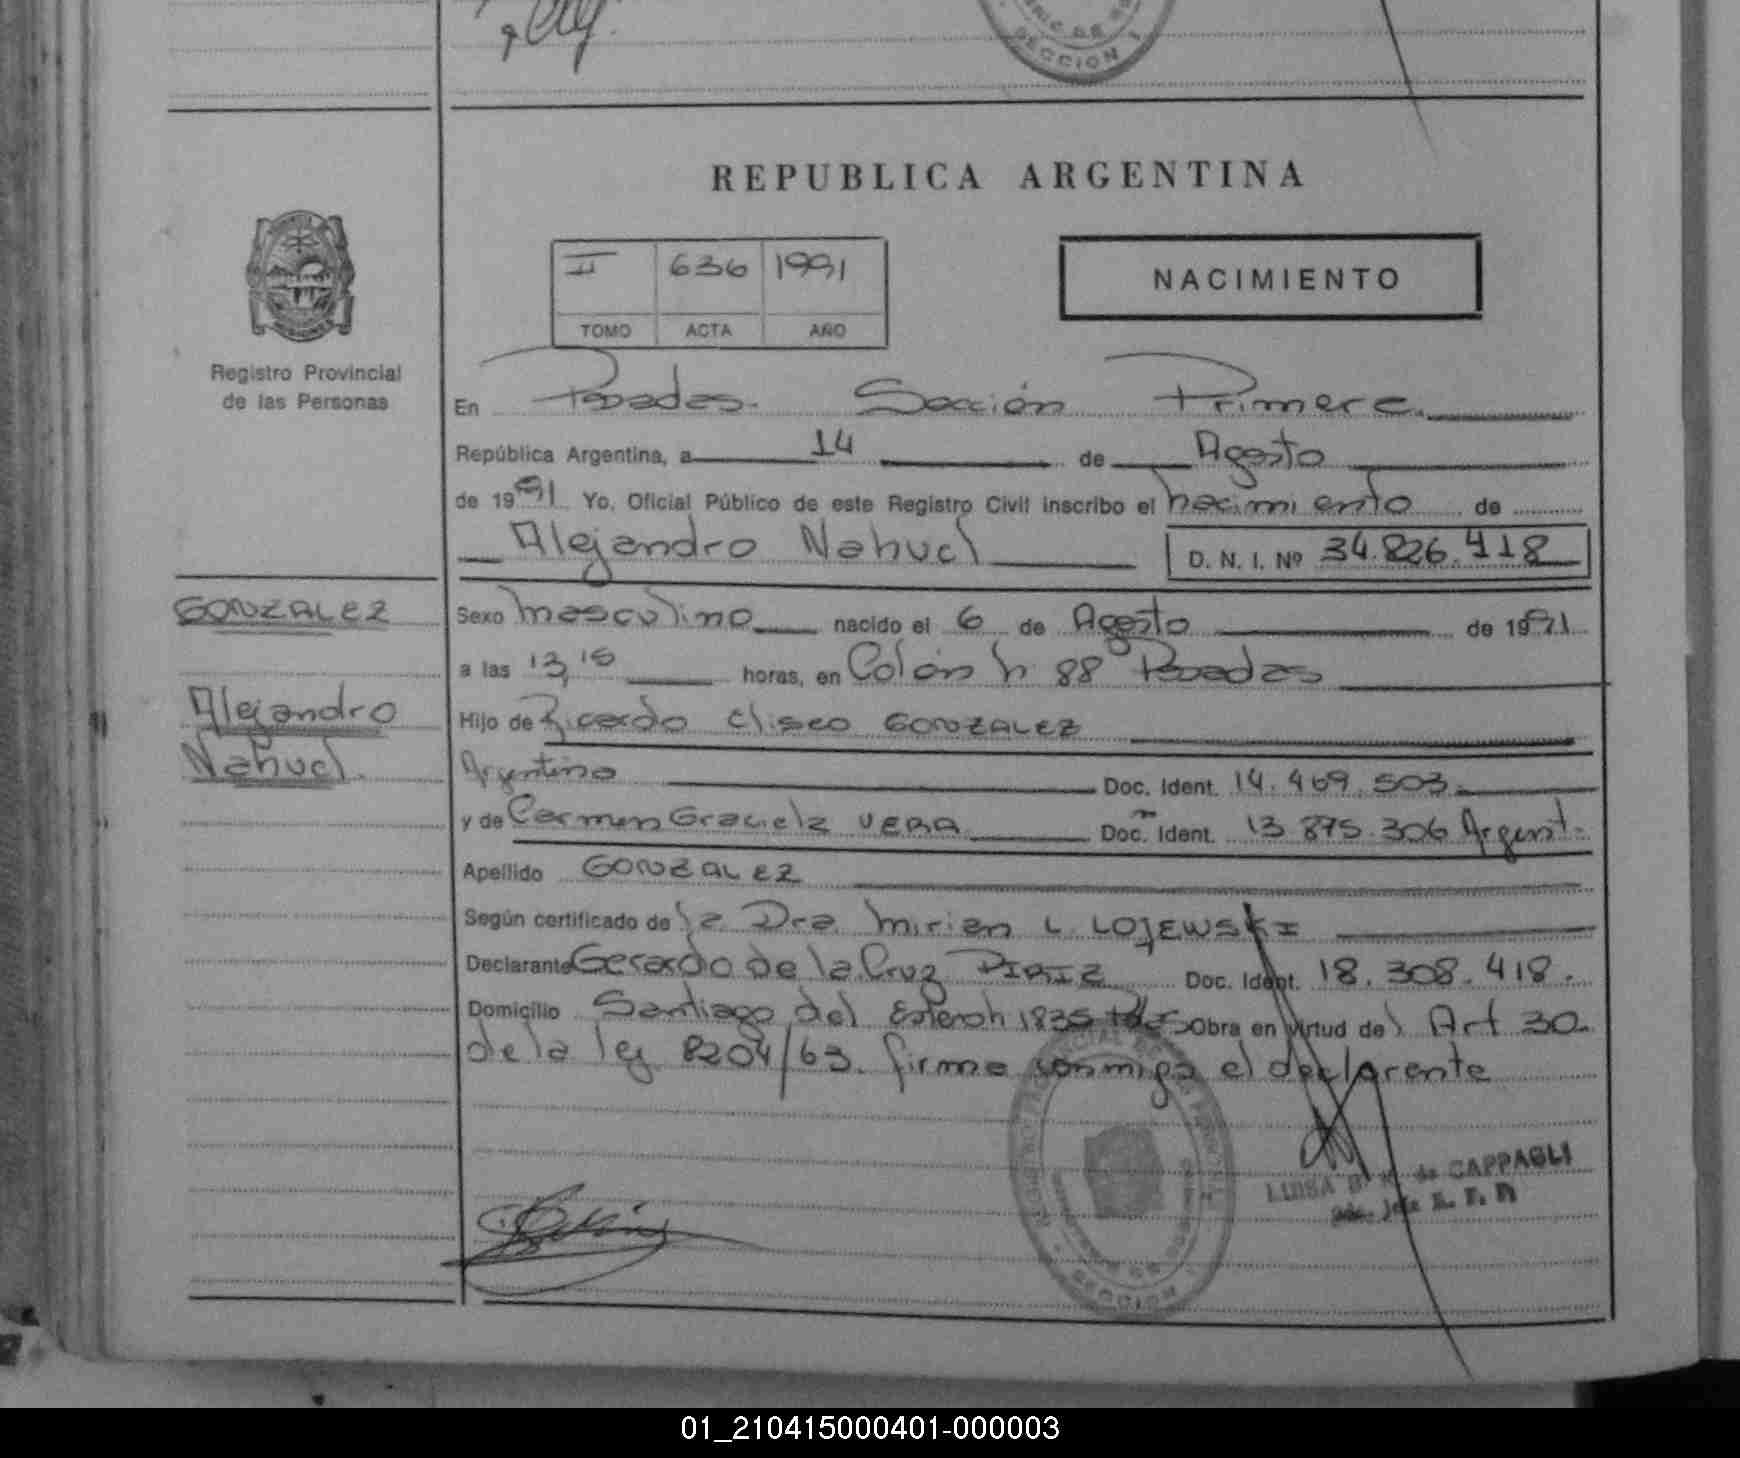 SECCION 1
REPUBLICA ARGENTINA
II 636 1991
TOMO ACTA AÑO
NACIMIENTO
Registro Provincial
de las Personas
En Posadas. Sección Primera.
República Argentina, a 14 de Agosto
de 1991 Yo, Oficial Público de este Registro Civil inscribo el nacimiento de
Alejandro Nahuel D. N. I. Nº 34.826.418
GONZALEZ
Alejandro
Nahuel.
Sexo masculino nacido el 6 de Agosto de 1991
a las 13,15 horas, en Colón n 88 Posadas
Hijo de Ricardo Eliseo GONZALEZ
Argentino Doc. Ident. 14.469.503
y de Carmen Graciela VERA Doc. Ident. 13.875.306 Argent.
Apellido GONZALEZ
Según certificado de la Dra Mirian L. LOJEWSKI
Declarante Gerardo de la Cruz PIRIZ Doc. Ident. 18.308.418.
Domicilio Santiago del Estero n 1835 Obra en virtud del Art 30
de la ley 8204/63. firma conmigo el declarante
de CAPPAGLI
SECCION 1
01_210415000401-000003